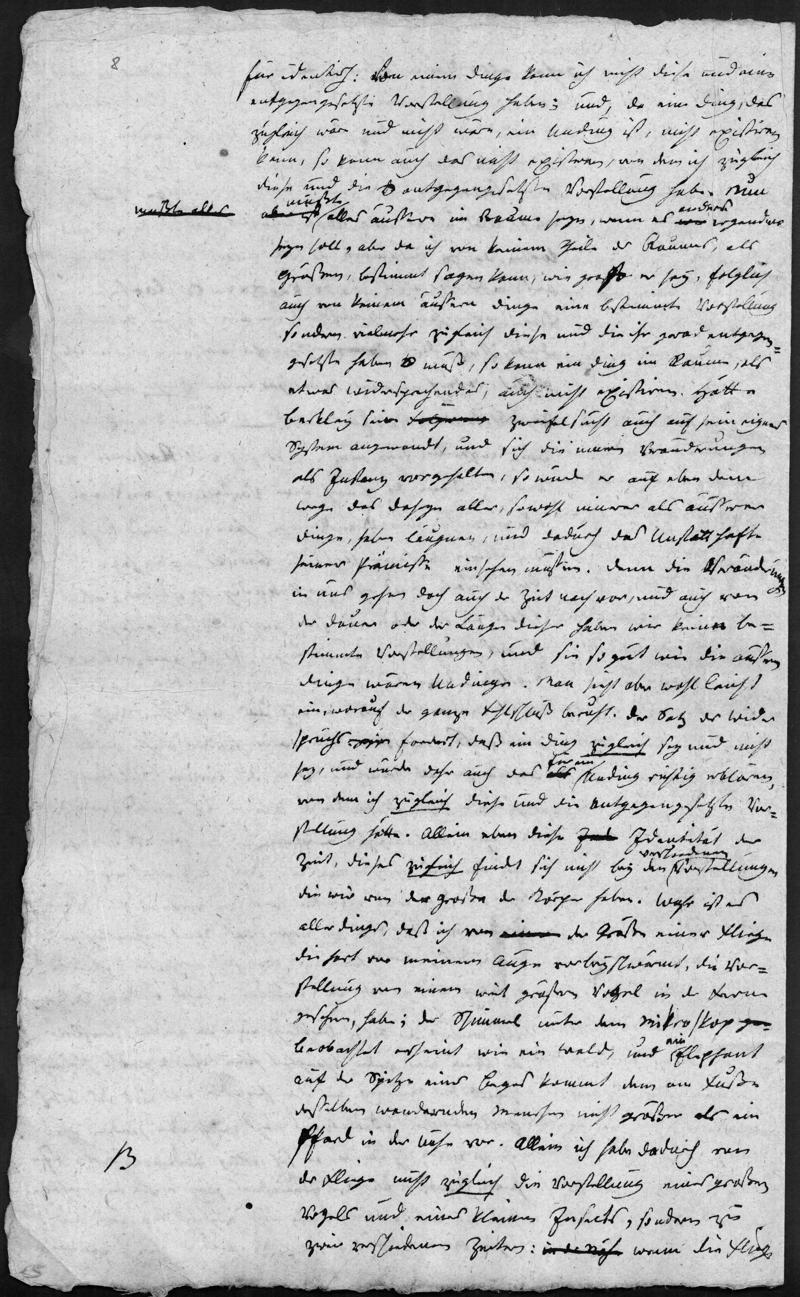 8
für identisch: Von einem Dinge kann ich nicht diese und eine
entgegengesetzte Vorstellung haben; und, da ein Ding, das
zugleich wäre und nicht wäre, ein Unding ist, nicht existiren
kann, so kann auch das nicht existiren, von dem ich zugleich
diese und die entgegengesetzte Vorstellung habe. Nun
mußte alles
müßte alles äussere im Raume seyn, wenn es anders irgendwo
seyn soll, aber da ich von keinem Theile des Raumes, als
Grössen, bestimmt sagen kann, wie groß er sey, folglich
auch von keinem äussern Dinge eine bestimmte Vorstellung
sondern vielmehr zugleich diese und die ihr gerad entgegen=
gesetzte haben muß, so kann ein Ding im Raume, als
etwas widersprechendes, auch nicht existiren. Hätte
Berkley seine Zweifelsucht auch auf sein eignes
System angewandt, und sich die innern Veränderungen
als Instanz vorgehalten, so würde er auf eben dem
Wege das Daseyn aller, sowohl innerer als äusserer
Dinge, haben läugnen, und dadurch das Unstatthafte
seiner Prämisse einsehen müssen. Denn die Veränderungen
in uns gehen doch auch in der Zeit vor, und auch von
der Dauer oder der Länge dieser haben wir keine be=
stimmte Vorstellungen, und sie so gut wie die äussern
Dinge wären Undinge. Man sieht aber wohl leicht
ein, worauf der ganze Fehlschluß beruht. Der Satz des Wider
spruchs fordert, daß ein Ding zugleich sey und nicht
sey, und würde daher auch das für ein Unding richtig erklären,
von dem ich zugleich diese und die entgegengesetzte Vor=
stellung hätte. Allein eben diese Identität der
Zeit, dieses zugleich findet sich nicht bey den verschiedenen Vorstellungen
die wir von der Grösse der Körper haben. Wahr ist es
allerdings, daß ich von der Grösse einer Fliege
die hart vor meinem Auge vorbeyschwärmt, die Vor=
stellung von einem weit grössern Vogel in der Ferne
gesehen, habe; der Schimmel unter dem Mikroskop
beobachtet erscheint wie ein Wald, und ein Elephant
auf der Spitze eines Berges kommt dem am Fusse
desselben wandernden Menschen nicht grösser als ein
Pferd in der Nähe vor. Allein ich habe dadurch von
der Fliege nicht zugleich die Vorstellung eines grossen
Vogels und eines kleinen Insekts, sondern zu
zwei verschiedenen Zeiten: wenn die Fliege
B